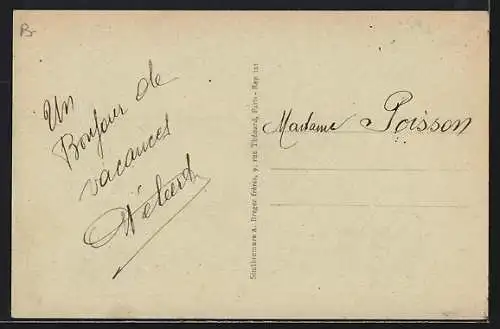 Br
Un
Bonjour de
vacances
Madame Poisson
A. Breger frères, 9, rue Thénard, Paris - Rep. int